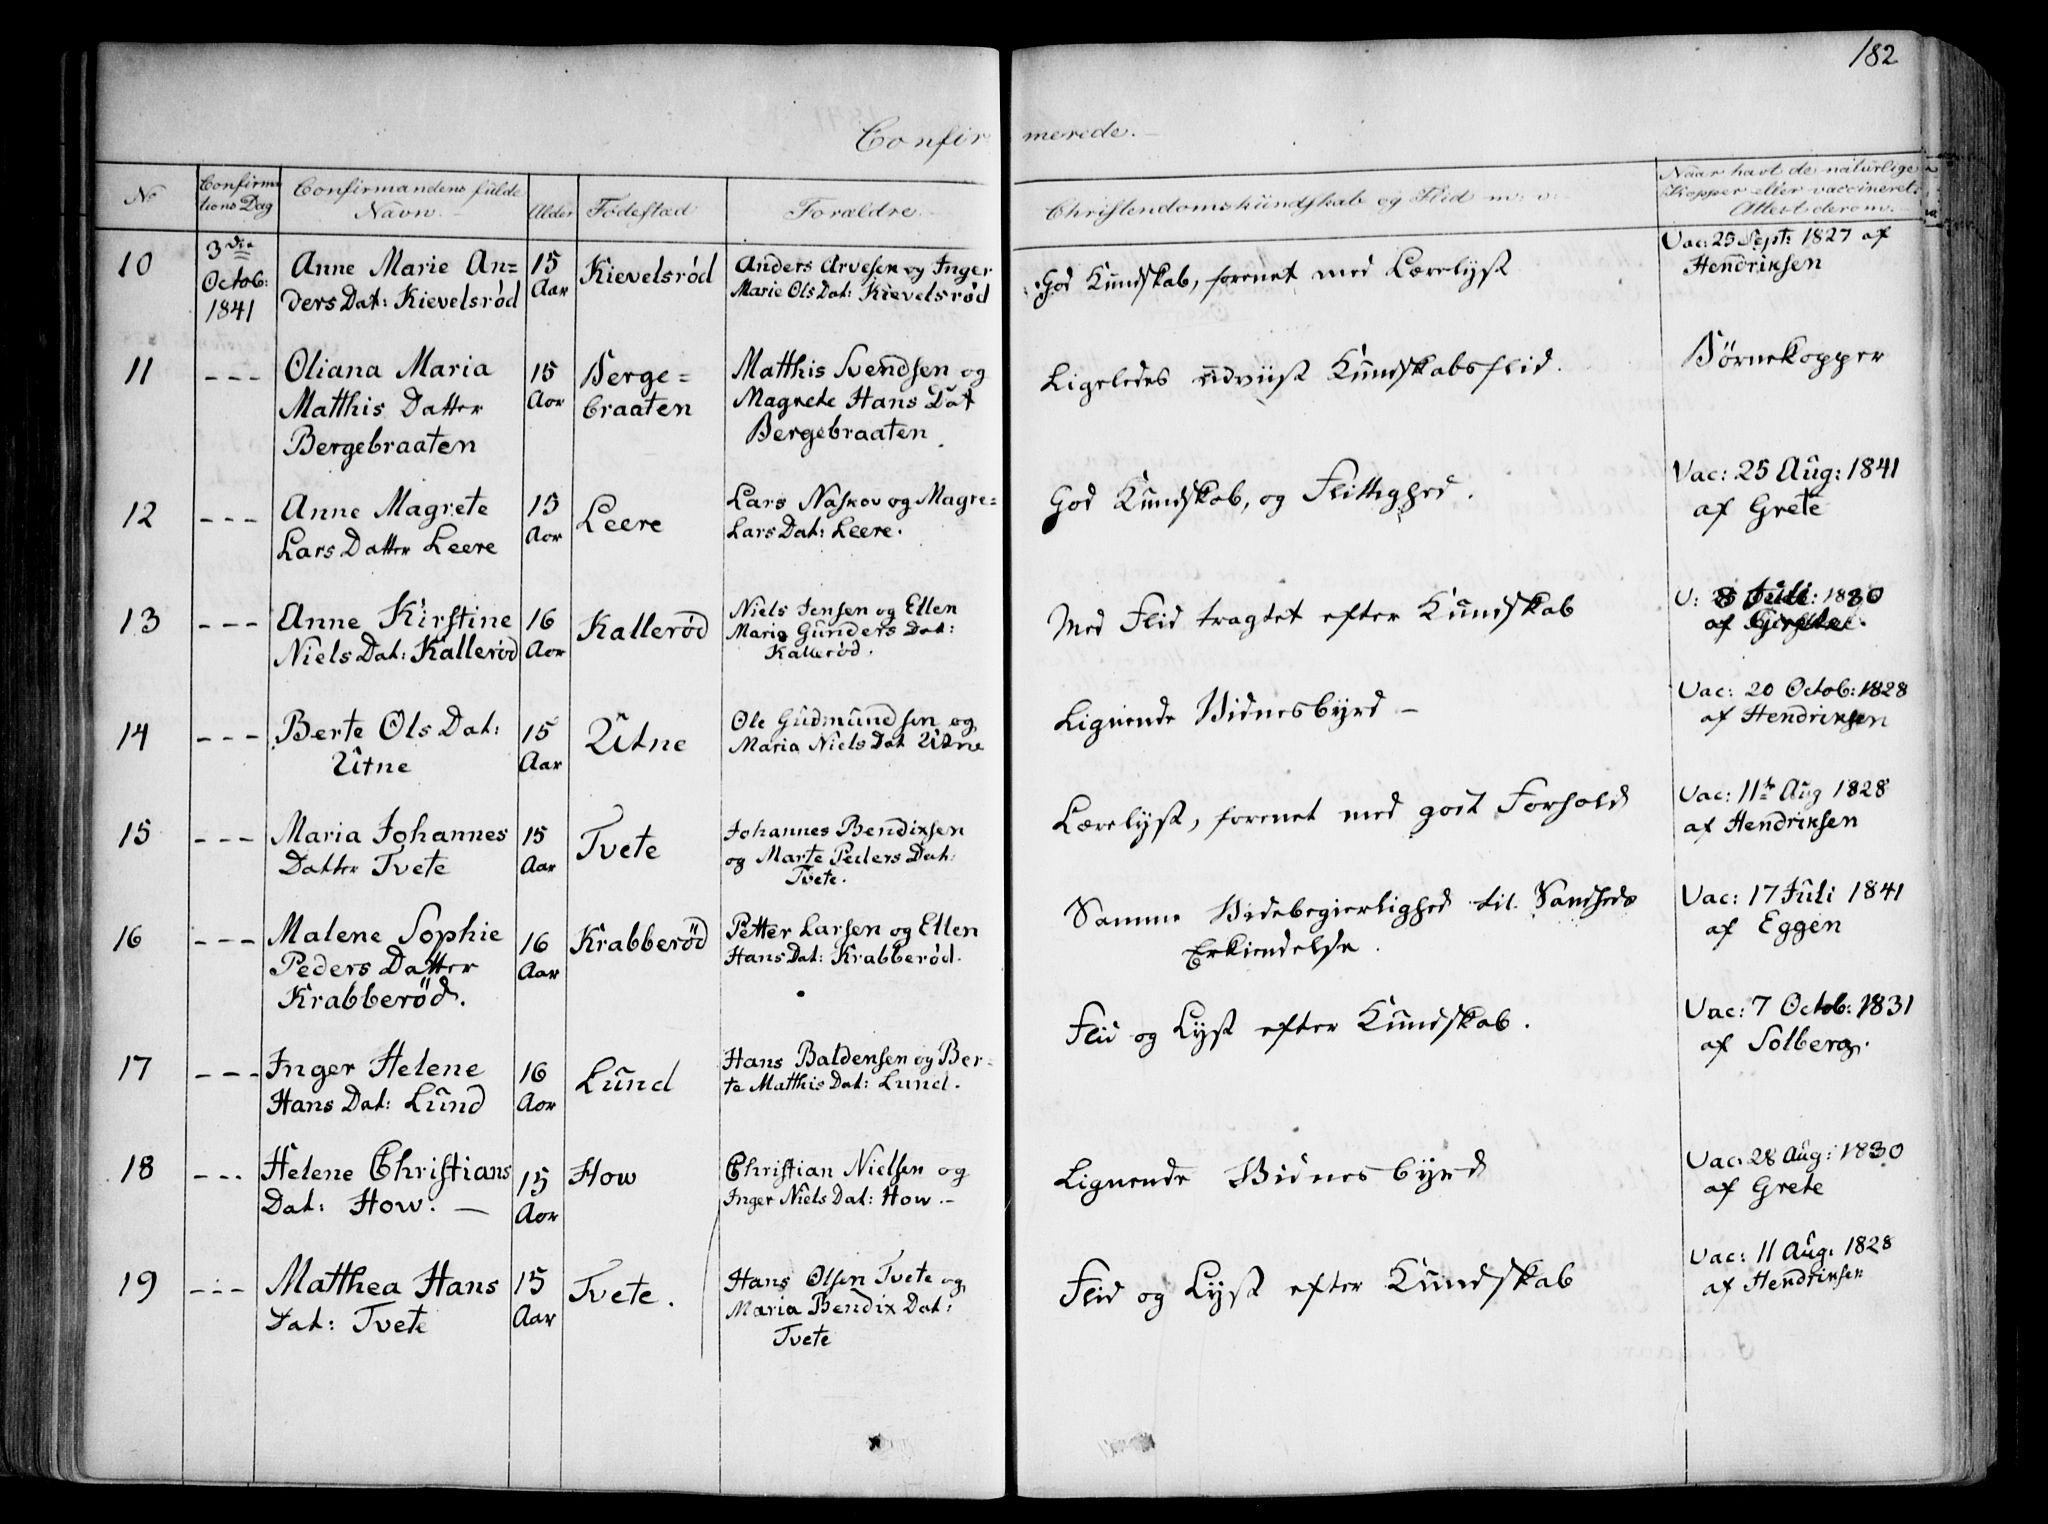 182
Confirmerede.
No
Confirma
tions Dag
Confirmandens fulde
Navn.
Alder
Födestæd
Forældre.
Christendomskundskab og Flid m: v:
Naar havt de naturlige
Kopper eller vaccineret.
Attest derom.
10
3die
Octob:
1841
Anne Marie An=
ders Dat: Kievelsrød
15
Aar
Kievelsrød
Anders Arvesen og Inger
Marie Ols Dat: Kievelsrød
God Kundskab, forenet med Lærelyst
Vac: 25 Sept: 1827 af
Hendriksen
11
- - -
Oliana Maria
Matthis Datter
Bergebraaten
15
Aar
Berge=
braaten
Matthis Svendsen og
Magrete Hans Dat
Bergebraaten
Ligeledes udviist Kundskabsflid.
Börnekopper
12
- - -
Anne Magrete
Lars Datter Leere
15
Aar
Leere
Lars Naskov og Magre=
Lars Dat: Leere.
God Kundskab, og Flittighed.
Vac: 25 Aug: 1841
af Grete
13
- - -
Anne Kirstine
Niels Dat: Kallerød
16
Aar
Kallerød
Niels Jensen og Ellen
Maria Gunders Dat:
Kallerød.
Med Flid tragtet efter Kundskab
V: 8 Juli: 1830
af Grete.
14
- - -
Berte Ols Dat:
Utne
15
Aar
Utne
Ole Gudmundsen og
Maria Niels Dat Utne
Lignende Vidnesbyrd -
Vac: 20 Octob: 1828
af Hendriksen
15
- - -
Maria Johannes
Datter Tvete
15
Aar
Tvete
Johannes Bendixsen
og Marte Peders Dat:
Tvete.
Lærelyst, forenet med godt Forhold
Vac: 11te Aug 1828
af Hendriksen
16
- - -
Malene Sophie
Peders Datter
Krabberöd.
16
Aar
Krabberöd
Petter Larsen og Ellen
Hans Dat: Krabberød.
Samme Videbegierlighed til Sandheds
Erkiendelse.
Vac: 17 Juli 1841
af Eggen
17
- - -
Inger Helene
Hans Dat: Lund
16
Aar
Lund
Hans Baldensen og Ber-
te Matthis Dat: Lund.
Flid og Lyst efter Kundskab.
Vac: 7 Octob: 1831
af Solberg.
18
- - -
Helene Christians
Dat: How. -
15
Aar
How
Christian Nielsen og
Inger Niels Dat: How. -
Lignende Vidnesbyrd
Vac: 28 Aug: 1830
af Grete
19
- - -
Matthea Hans
Dat: Tvete
15
Aar
Tvete.
Hans Olsen Tvete og
Maria Bendix Dat:
Tvete
Flid og Lyst efter Kundskab
Vac: 11 Aug: 1828
af Hendriksen